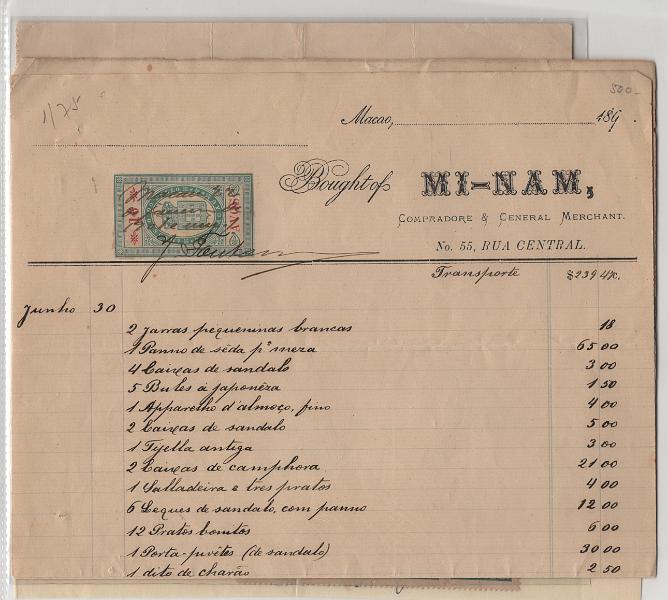 1/75
500-
Macao, 189
Bought of MI-NAM,
COMPRADORE & GENERAL MERCHANT.
No. 55, RUA CENTRAL.
Transporte $239 42.
Junho 30
2 Jarras pequeninas brancas 18
1 Panno de sêda pª meza 65 00
4 Caixas de sandalo 3 00
5 Bules á japonêza 1 50
1 Apparelho d'almoço, fino 4 00
2 Caixas de sandalo 5 00
1 Tijella antiga 3 00
2 Caixas de camphora 21 00
1 Salladeira e tres pratos 4 00
6 Leques de sandalo, com panno 12 00
12 Pratos bonitos 6 00
1 Porta-joias (de sandalo) 30 00
1 dito de charão 2 50